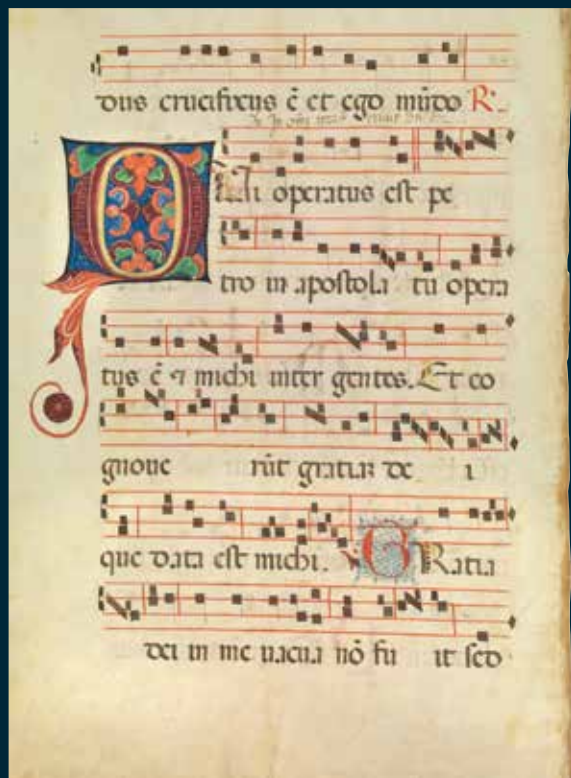 dus crucifixus ē et ego mūdo R.
Qui operatus est pe
tro in apostola tu opera
tus ē ⁊ michi inter gentes. Et co
gnoue rūt gratiaꝫ de i
que data est michi. GRatia
dei in me uacua nō fu it sed